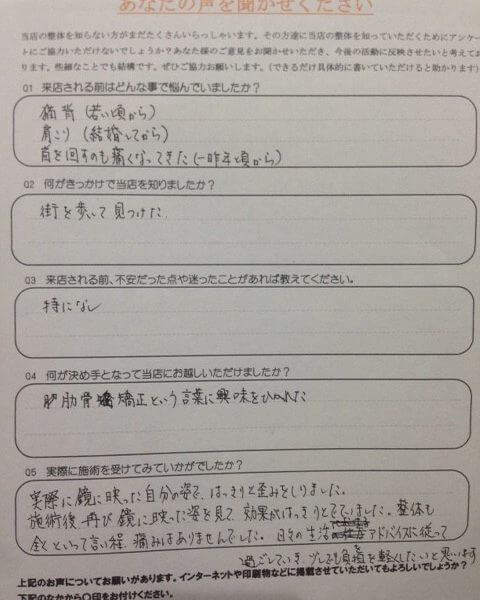 あなたの声を聞かせください
当店の整体を知らない方がまだたくさんいらっしゃいます。その方達に当店の整体を知っていただくためにアンケー
トにご協力いただけないでしょうか?あなた様のご意見をお聞かせいただき、今後の活動に反映させたいと考えてお
ります。些細なことでも結構です。ぜひご協力お願いします。(できるだけ具体的に書いていただけると助かります)
01 来店される前はどんな事で悩んでいましたか?
猫背(若い頃から)
肩こり(結婚してから)
首を回すのも痛くなってきた(一昨年頃から)
02 何がきっかけで当店を知りましたか?
街を歩いて見つけた
03 来店される前、不安だった点や迷ったことがあれば教えてください。
特になし
04 何が決め手となって当店にお越しいただけましたか?
肋骨矯正という言葉に興味をひかれた
05 実際に施術を受けてみていかがでしたか?
実際に鏡に映った自分の姿で、はっきりと歪みをしりました。
施術後、再び鏡に映った姿を見て、効果がはっきりとでていました。整体も
全くといって言い程、痛みはありませんでした。日々の生活アドバイスに従って
過ごしていき、少しでも負担を軽くしたいと思います
上記のお声についてお願いがあります。インターネットや印刷物などに掲載させていただいてもよろしいでしょうか?
下記のなかから〇印をお付けください。